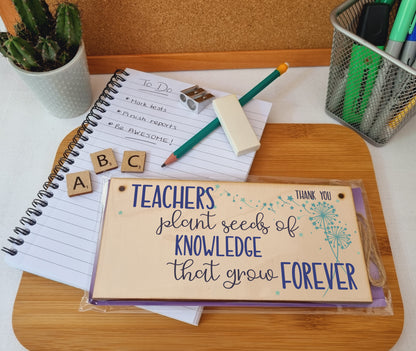 To Do
• Mark tests
• Finish reports
• Be AWESOME!
A B C
TEACHERS THANK YOU
plant seeds of
KNOWLEDGE
that grow FOREVER